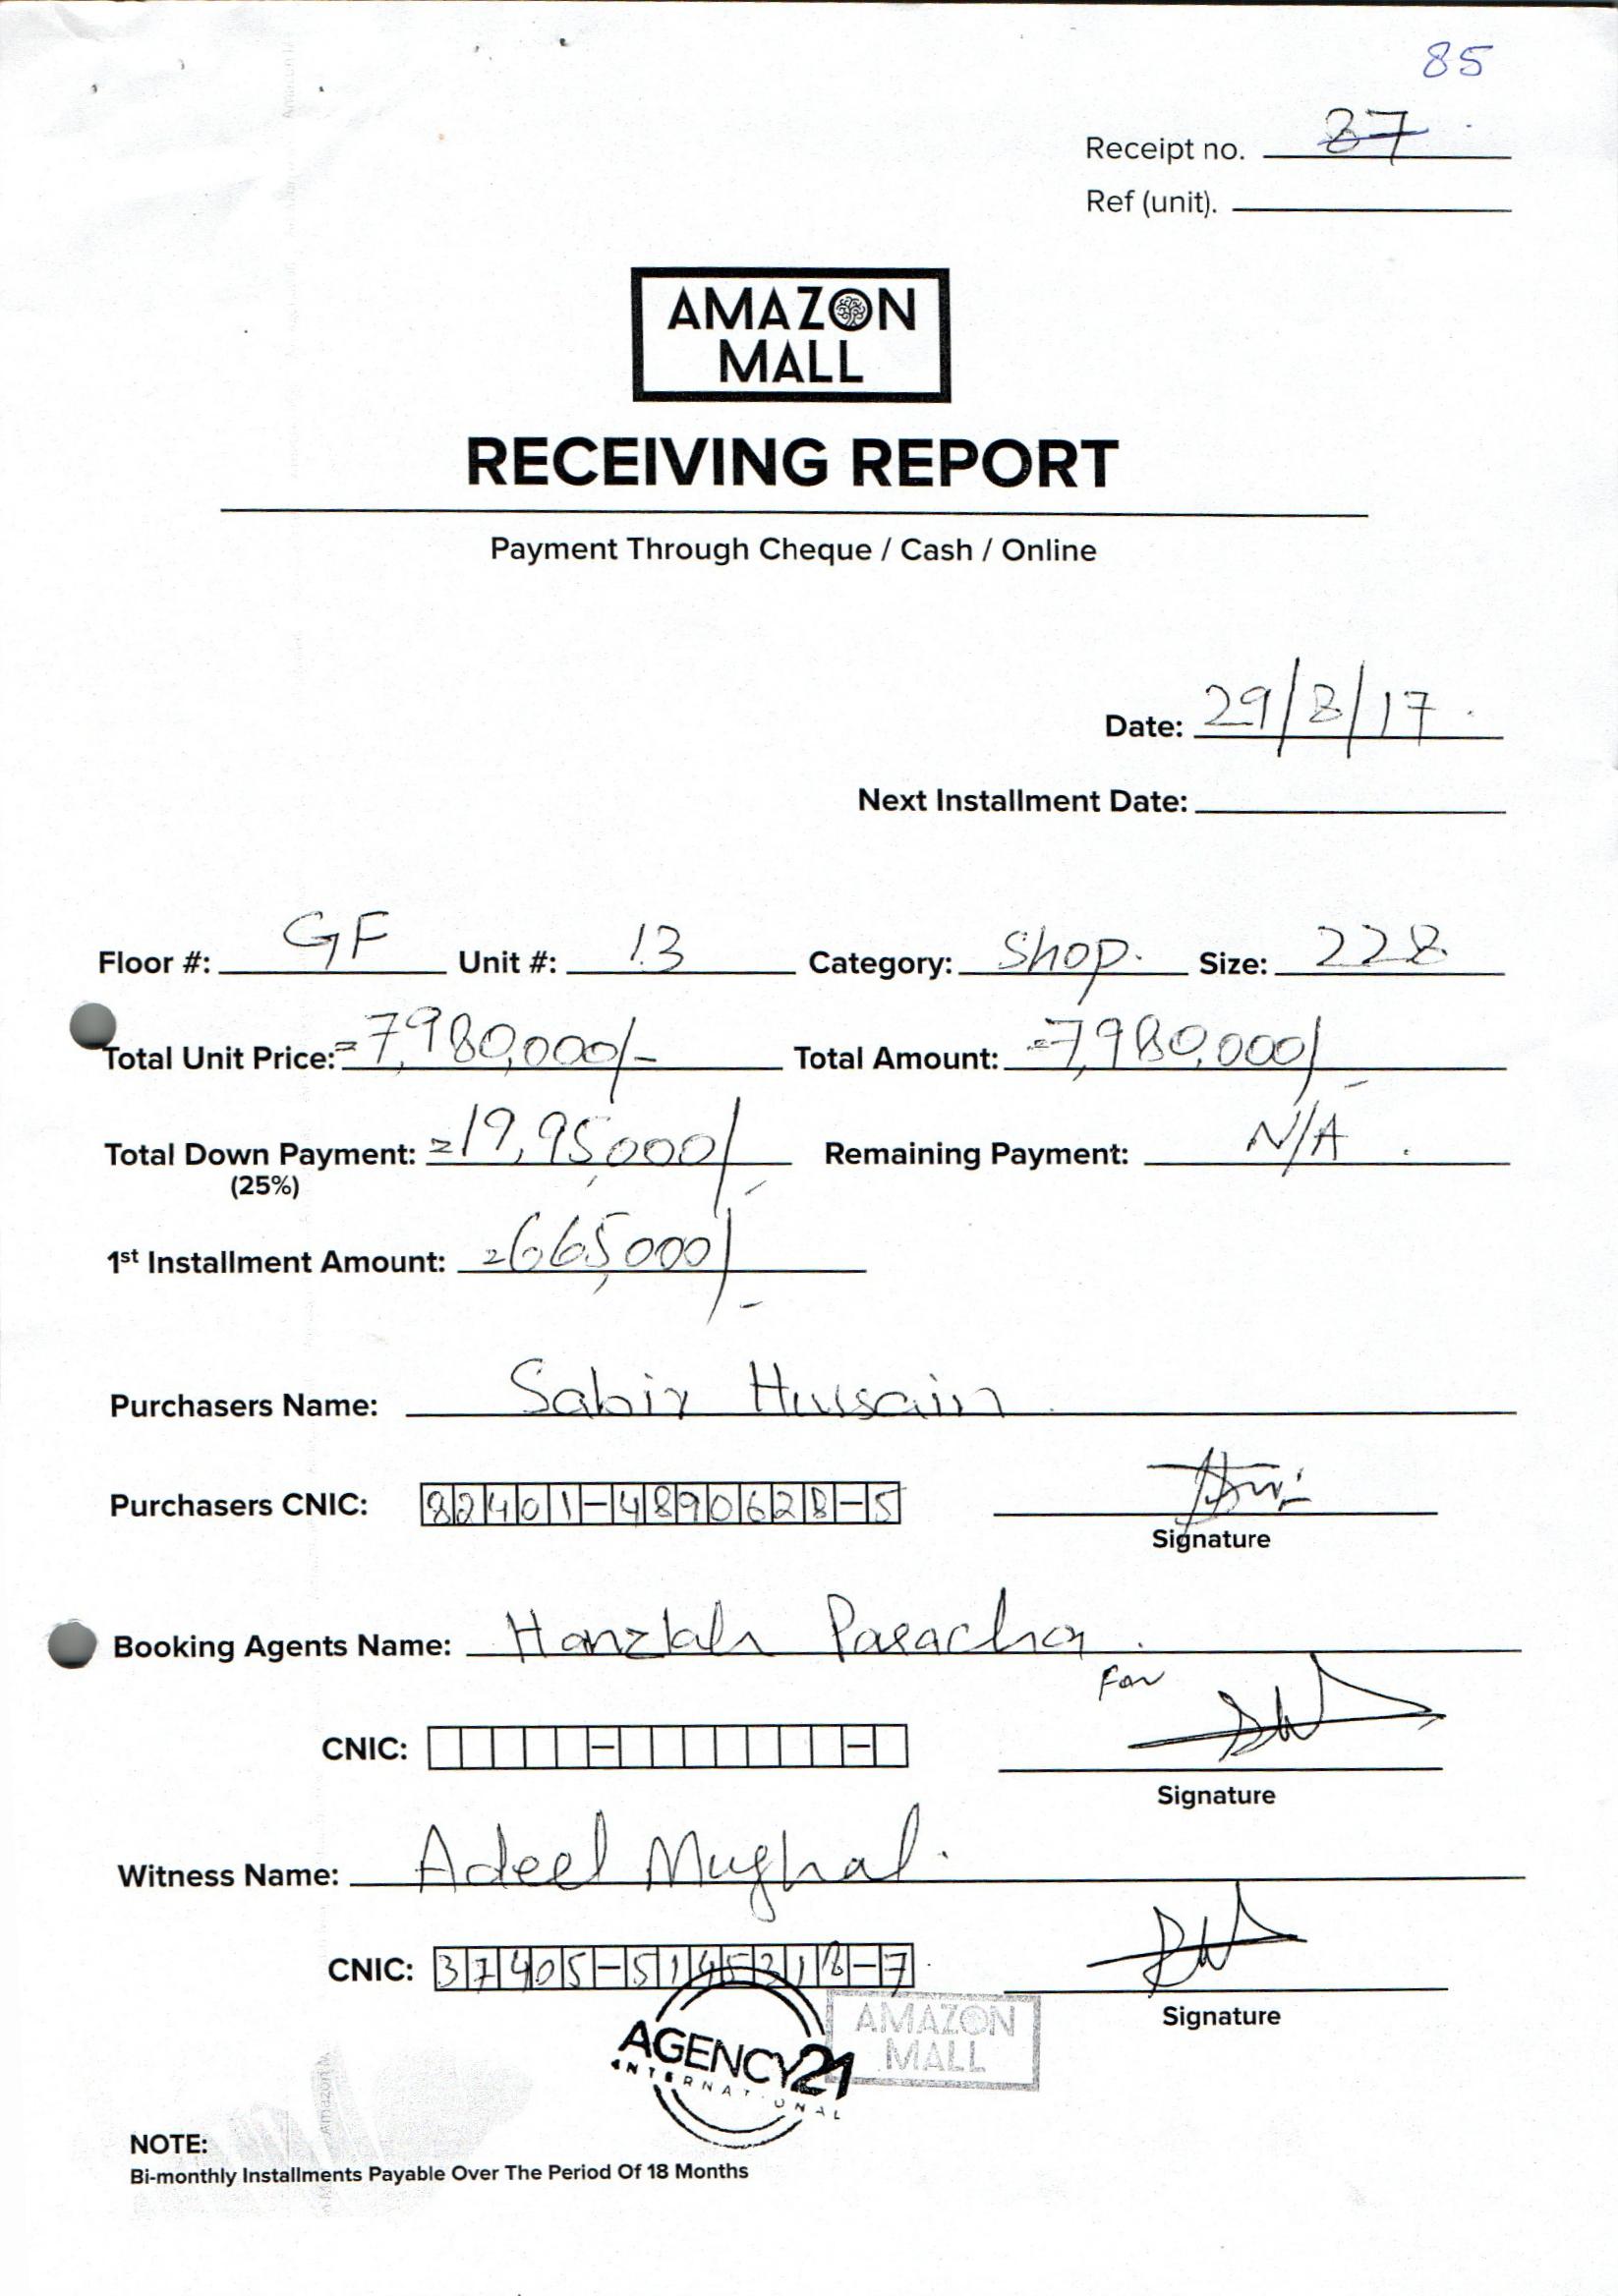 85
Receipt no. 87
Ref (unit).
AMAZON
MALL
RECEIVING REPORT
Payment Through Cheque / Cash / Online
Date: 29/8/17
Next Installment Date:
Floor #: GF Unit #: 13 Category: Shop. Size: 228
Total Unit Price: =7,980,000/- Total Amount: =7,980,000/-
Total Down Payment: =19,95,000/- Remaining Payment: N/A
(25%)
1st Installment Amount: =665,000/-
Purchasers Name: Sabir Hussain
Purchasers CNIC: 82401-4890628-5
Signature
Booking Agents Name: Hanzlah Paracha
For
CNIC: - -
Signature
Witness Name: Adeel Mughal.
CNIC: 37405-5145318-7
Signature
AGENCY21
INTERNATIONAL
AMAZON
MALL
NOTE:
Bi-monthly Installments Payable Over The Period Of 18 Months